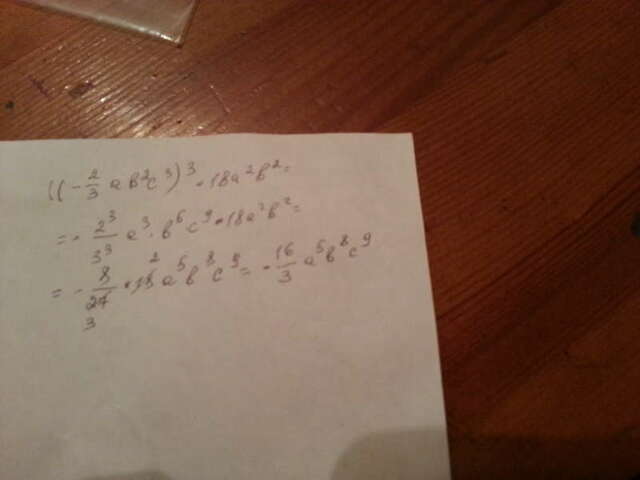 ((-2/3 ab²c³)³ · 18a²b² =
= - 2³/3³ a³ · b⁶ c⁹ · 18a²b² =
= - 8/27 3 · 18 2 a⁵ b⁸ c⁹ = - 16/3 a⁵b⁸c⁹